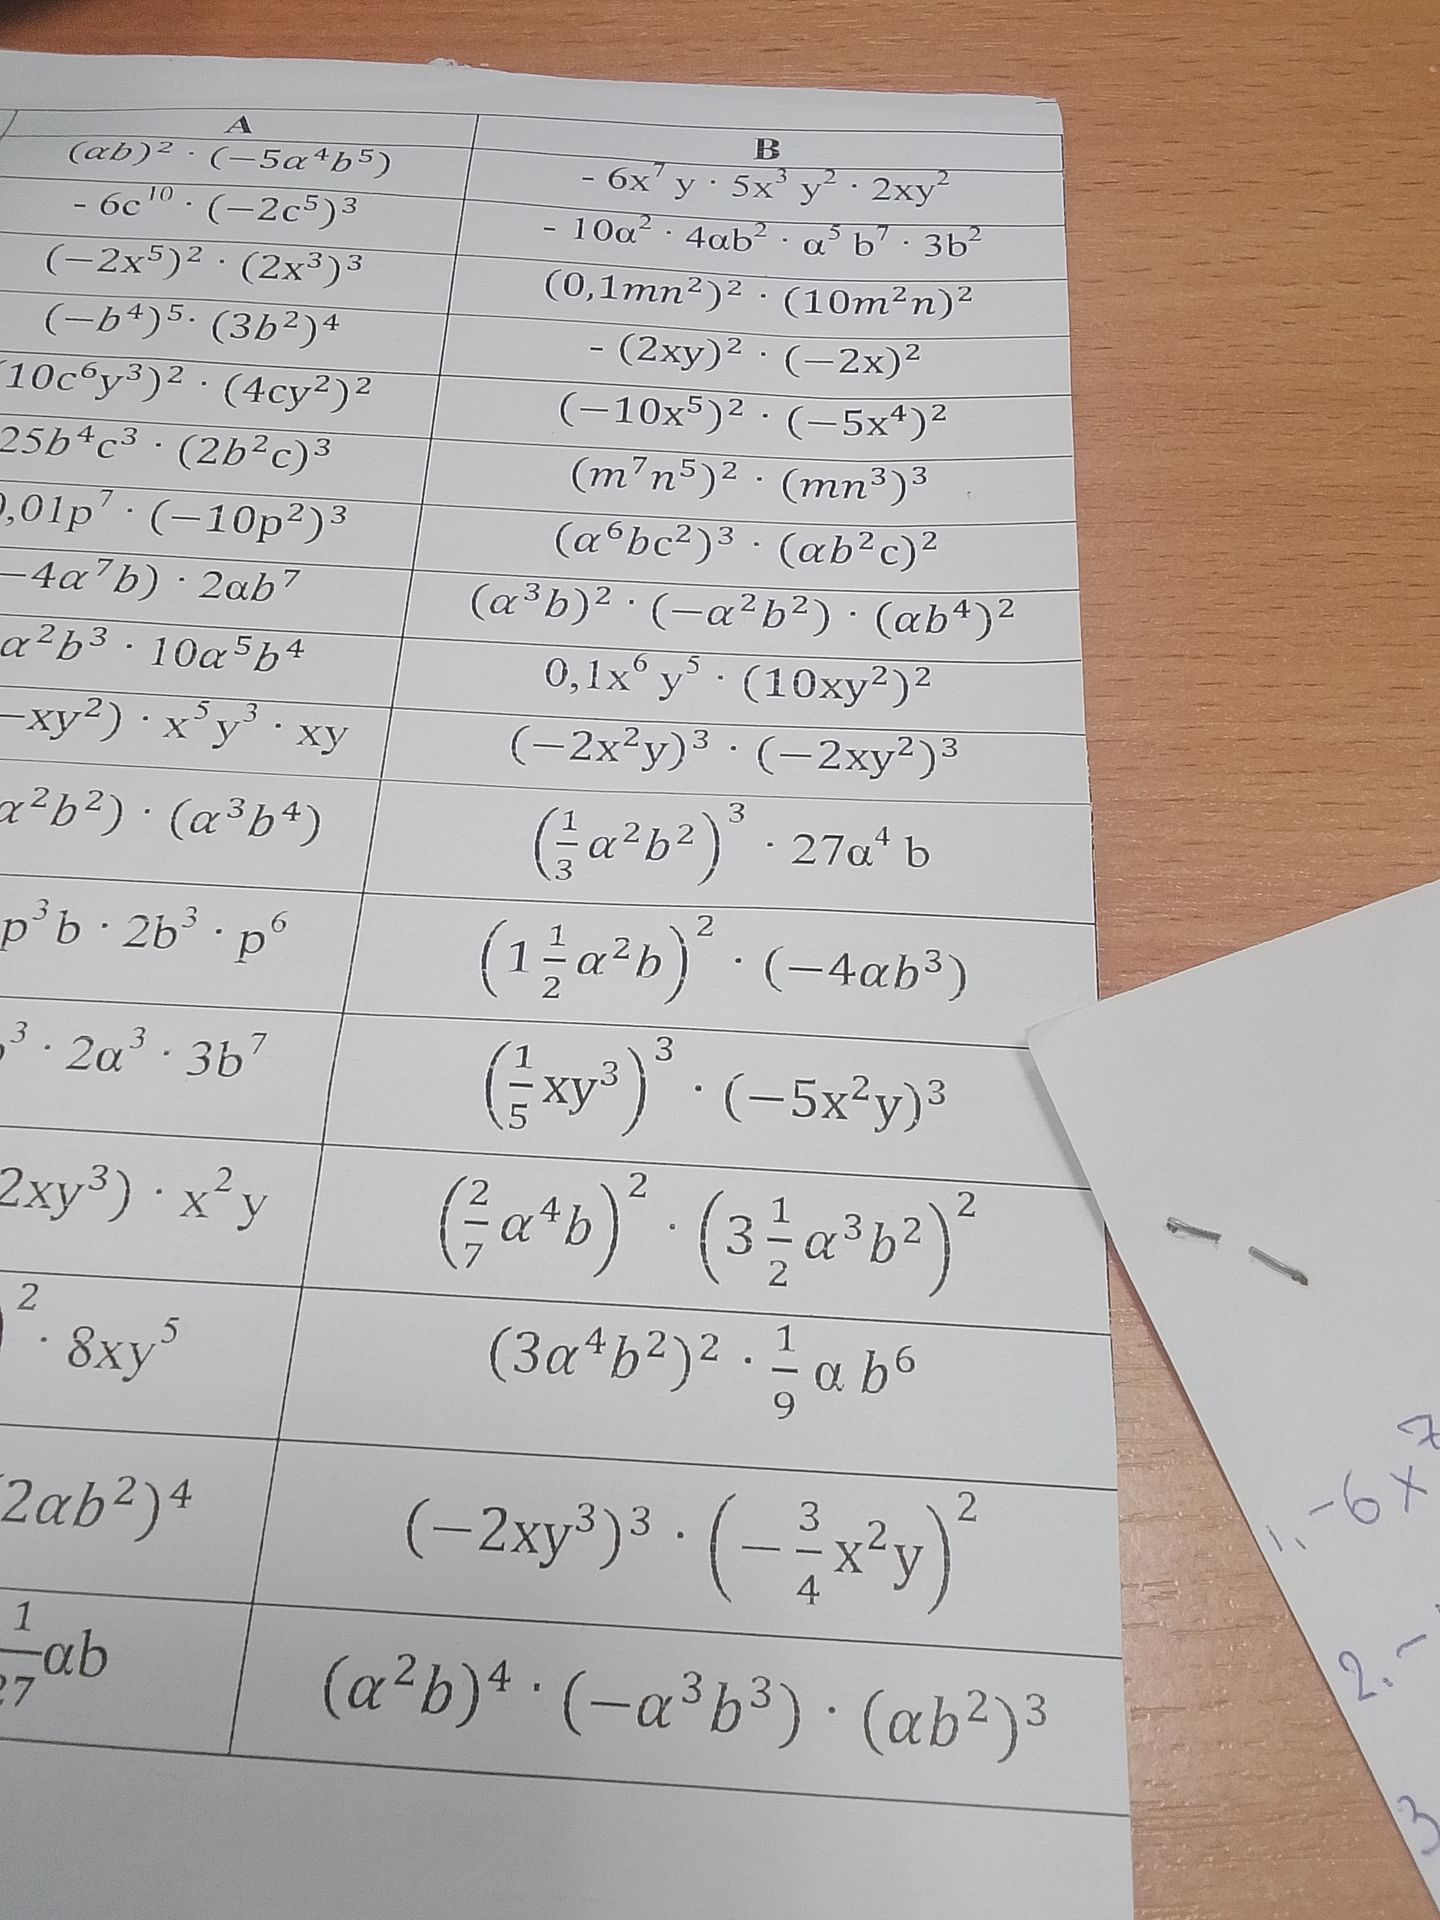 A B
(ab)² · (−5a⁴b⁵) - 6x⁷ y · 5x³ y² · 2xy²
- 6c¹⁰ · (−2c⁵)³ - 10a² · 4ab² · a⁵ b⁷ · 3b²
(−2x⁵)² · (2x³)³ (0,1mn²)² · (10m²n)²
(−b⁴)⁵· (3b²)⁴ - (2xy)² · (−2x)²
10c⁶y³)² · (4cy²)² (−10x⁵)² · (−5x⁴)²
25b⁴c³ · (2b²c)³ (m⁷n⁵)² · (mn³)³
,01p⁷ · (−10p²)³ (a⁶bc²)³ · (ab²c)²
−4a⁷b) · 2ab⁷ (a³b)² · (−a²b²) · (ab⁴)²
a²b³ · 10a⁵b⁴ 0,1x⁶ y⁵ · (10xy²)²
−xy²) · x⁵y³ · xy (−2x²y)³ · (−2xy²)³
a²b²) · (a³b⁴) (1/3 a²b²)³ · 27a⁴ b
p³b · 2b³ · p⁶ (1 1/2 a²b)² · (−4ab³)
³ · 2a³ · 3b⁷ (1/5 xy³)³ · (−5x²y)³
2xy³) · x²y (2/7 a⁴b)² · (3 1/2 a³b²)²
)² · 8xy⁵ (3a⁴b²)² · 1/9 a b⁶
2ab²)⁴ (−2xy³)³ · (−3/4 x²y)²
1/27 ab (a²b)⁴ · (−a³b³) · (ab²)³
1. -6x⁷
2. -
3